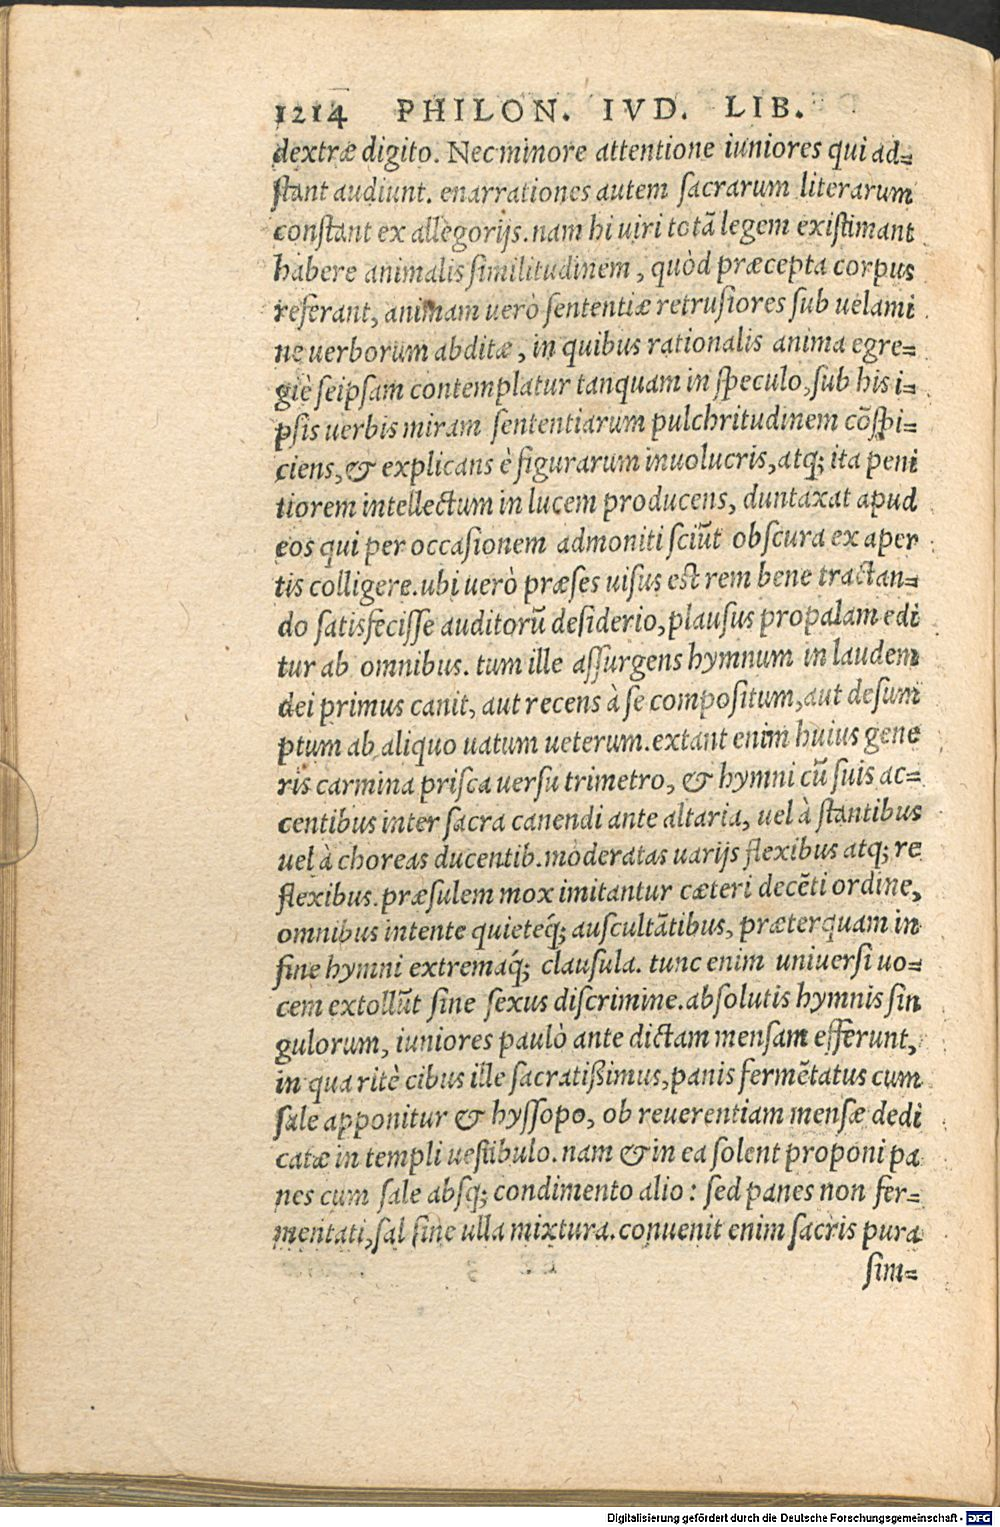 1214 PHILON. IVD. LIB.
dextræ digito. Nec minore attentione iuniores qui ad-
stant audiunt. enarrationes autem sacrarum literarum
constant ex allegorijs. nam hi uiri totã legem existimant
habere animalis similitudinem, quòd præcepta corpus
referant, animam uerò sententiæ retrusiores sub uelami
ne uerborum abditæ, in quibus rationalis anima egre-
giè seipsam contemplatur tanquam in speculo, sub his i-
psis uerbis miram sententiarum pulchritudinem cõspi-
ciens, & explicans è figurarum inuolucris, atq; ita peni
tiorem intellectum in lucem producens, duntaxat apud
eos qui per occasionem admoniti sciũt obscura ex aper
tis colligere. ubi uerò præses uisus est rem bene tractan-
do satisfecisse auditorũ desiderio, plausus propalam edi
tur ab omnibus. tum ille assurgens hymnum in laudem
dei primus canit, aut recens à se compositum, aut desum
ptum ab aliquo uatum ueterum. extant enim huius gene
ris carmina prisca uersu trimetro, & hymni cũ suis ac-
centibus inter sacra canendi ante altaria, uel à stantibus
uel à choreas ducentib. moderatas uarijs flexibus atq; re
flexibus. præsulem mox imitantur cæteri decẽti ordine,
omnibus intente quieteq́; auscultãtibus, præterquam in
fine hymni extremaq́; clausula. tunc enim uniuersi uo-
cem extollũt sine sexus discrimine. absolutis hymnis sin
gulorum, iuniores paulò ante dictam mensam efferunt,
in qua ritè cibus ille sacratißimus, panis fermẽtatus cum
sale apponitur & hyssopo, ob reuerentiam mensæ dedi
catæ in templi uestibulo. nam & in ea solent proponi pa
nes cum sale absq; condimento alio: sed panes non fer-
mentati, sal sine ulla mixtura. conuenit enim sacris pura
sim-
Digitalisierung gefördert durch die Deutsche Forschungsgemeinschaft - DFG